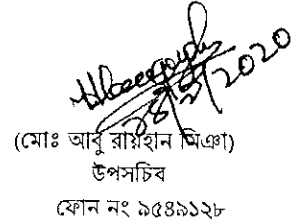 (মোঃ আবু রায়হান মিঞা)
উপসচিব
ফোন নং ৯৫৪৯১২৮